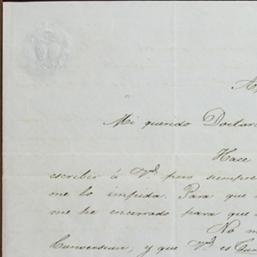 Mi querido Doctor
Hace
escribir á Vd. pero siempre
me lo impida. Para que
me he encerrado para que
No
y que Vd. es